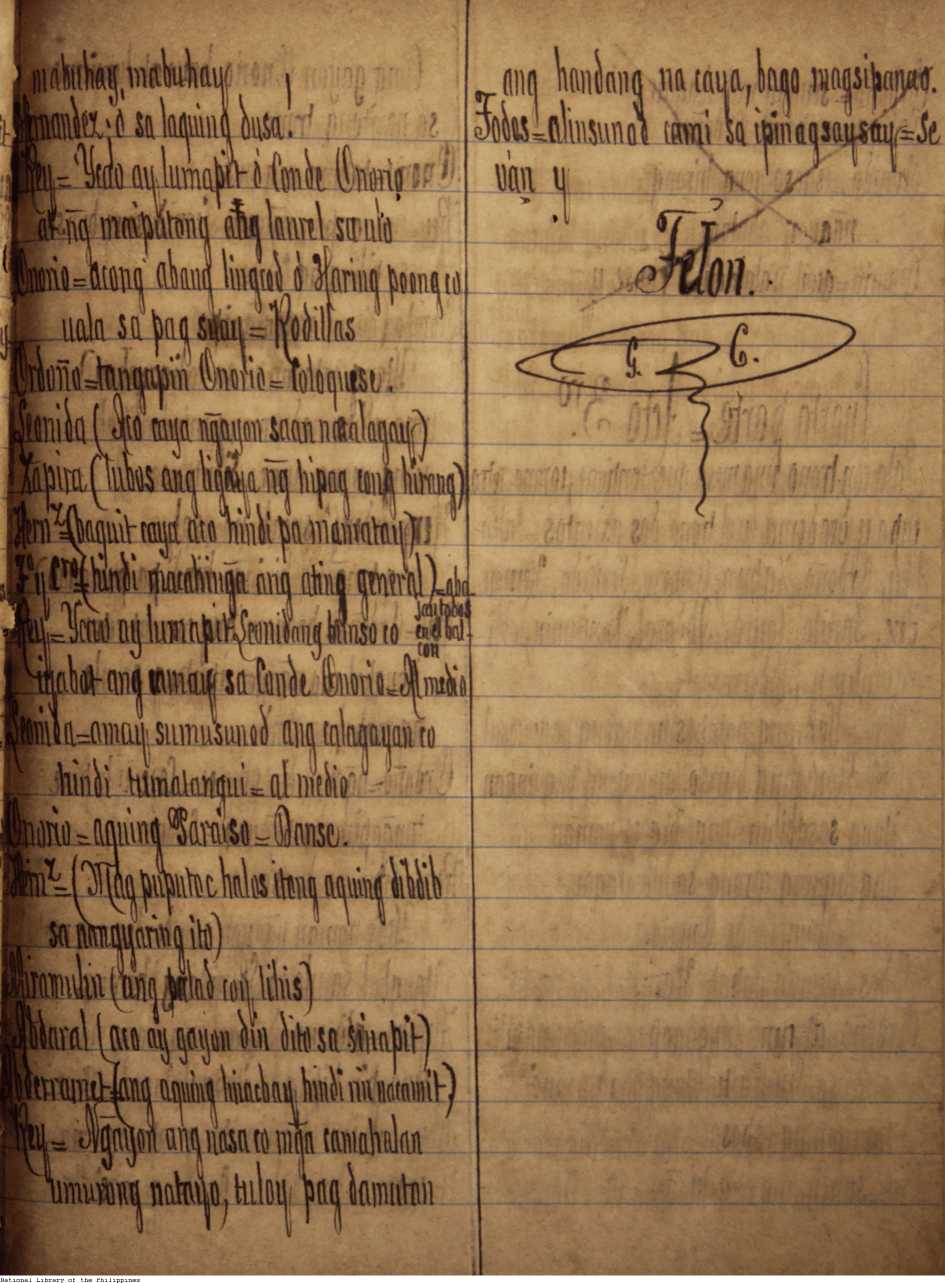 mabuhay, mabuhay
Hernandez ó sa laquing dusa!
Rey = Ycao ay lumapit ó Conde Onorio
at ng̃ maipatong ang laurel sa ulo
Onorio = acong abang lingcod ó Haring poong co
uala sa pag suay = Rodillas
Ordoño = tangapin Onorio = Coloquese.
Leonida ( Aco caya ng̃ayon saan nacalagay )
Zapira ( lubos ang ligaya ng̃ hipag cong hirang )
Hern.z = ( baquit caya aco hindi pa mamatay )
( hindi macahing̃a ang ating general ) = aba
jan todos
en el bal-
con
Rey = Ycao ay lumapit Leonidang bunso co
iyabot ang camay sa Conde Onorio = Al medio
Leonida = amay sumusunod ang calagayan co
hindi tumatangui = al medio
Onorio = aquing Paraiso = Danse.
Hern.z = ( Mag puputoc halos iteng aquing dibdib
sa nangyaring ito )
Miramulin ( ang palad coy lihis )
Abdaral ( aco ay gayon din dito sa sinapit )
Abderramet ( ang aquing hinacbay hindi rin nacamit )
Rey = Ng̃ayon ang nasa co mg̃a camahalan
umurong natayo, tuloy pag damutan
ang handang na caya, bago magsipanao.
Todos = alinsunod cami sa ipinagsaysay = Se
ván y
Telon.
G. C.
National Library of the Philippines